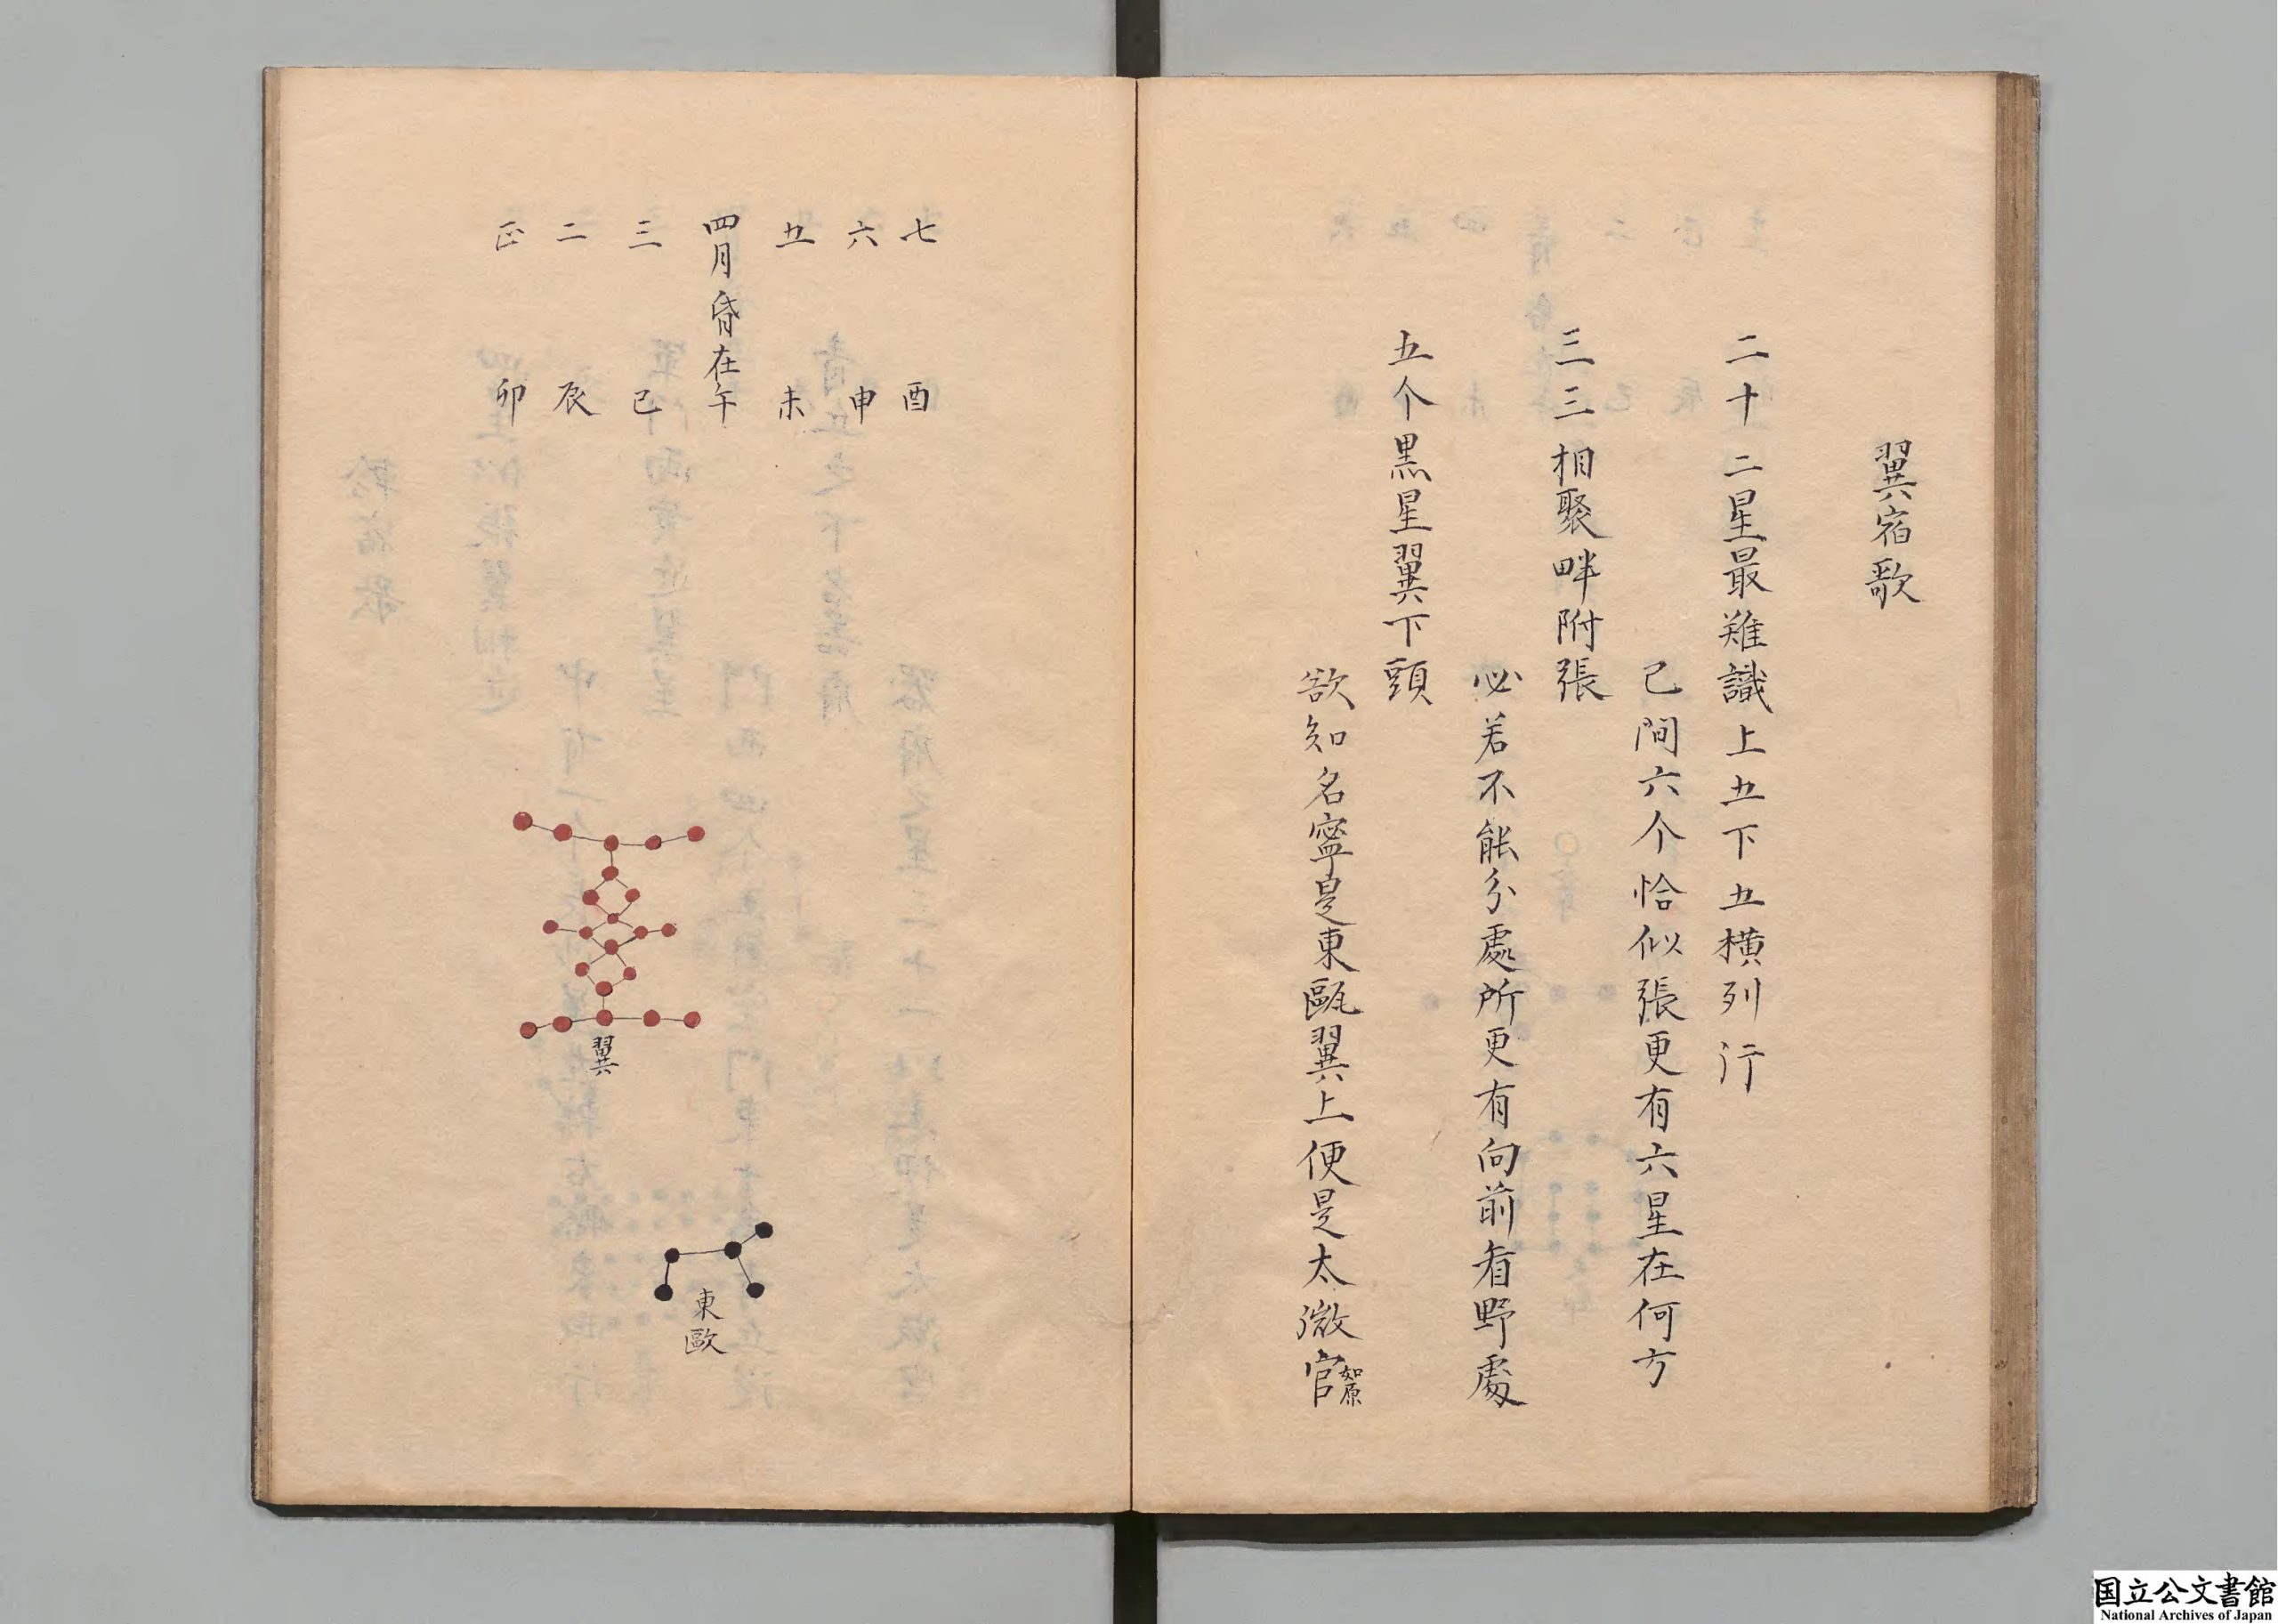 翼宿歌
二十二星最難識上五下五横列行
已間六个恰似張更有六星在何方
三三相聚畔附張
必若不能分處所更有向前看野處
五个黒星翼下頭
欲知名寧是東甌翼上便是太微官如原
七 酉
六 申
五 未
四月昏在午
三 巳
二 辰
正 卯
翼
東歐
国立公文書館
National Archives of Japan